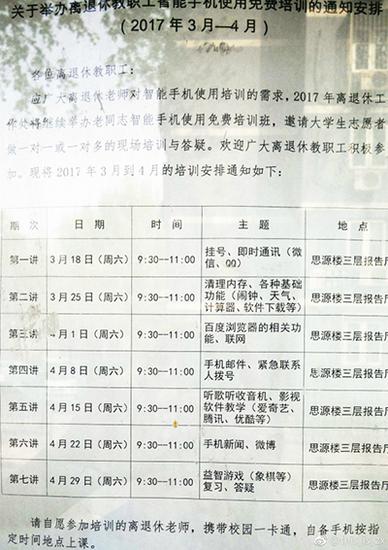 关于举办离退休教职工智能手机使用免费培训的通知安排
（2017 年 3 月—4 月）
各位离退休教职工：
应广大离退休老师对智能手机使用培训的需求，2017 年离退休工
作处将继续举办老同志智能手机使用免费培训班，邀请大学生志愿者
做一对一或一对多的现场培训与答疑。欢迎广大离退休教职工积极参
加。现将 2017 年 3 月到 4 月的培训安排通知如下：
期 次 日 期 时 间 主 题 地 点
第一讲 3 月 18 日（周六） 9:30--11:00 挂号、即时通讯（微信、QQ） 思源楼三层报告厅
第二讲 3 月 25 日（周六） 9:30--11:00 清理内存、各种基础功能（闹钟、天气、计算器、软件下载等） 思源楼三层报告厅
第三讲 4 月 1 日（周六） 9:30--11:00 百度浏览器的相关功能、联网 思源楼三层报告厅
第四讲 4 月 8 日（周六） 9:30--11:00 手机邮件、紧急联系人拨号 思源楼三层报告厅
第五讲 4 月 15 日（周六） 9:30--11:00 听歌听收音机、影视软件教学（爱奇艺、腾讯、优酷等） 思源楼三层报告厅
第六讲 4 月 22 日（周六） 9:30--11:00 手机新闻、微博 思源楼三层报告厅
第七讲 4 月 29 日（周六） 9:30--11:00 益智游戏（象棋等）复习、答疑 思源楼三层报告厅
请自愿参加培训的离退休老师，携带校园一卡通，自备手机按指
定时间地点上课。